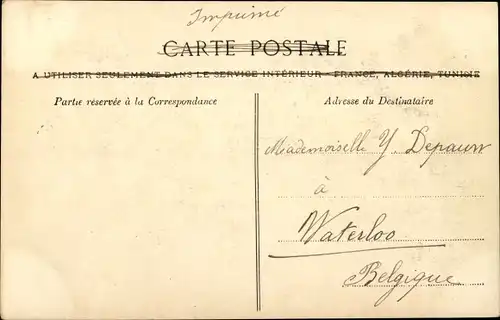 Imprimé
CARTE POSTALE
A UTILISER SEULEMENT DANS LE SERVICE INTÉRIEUR - FRANCE, ALGÉRIE, TUNISIE
Partie réservée à la Correspondance
Adresse du Destinataire
Mademoiselle Y. Depauw
à
Waterloo
Belgique